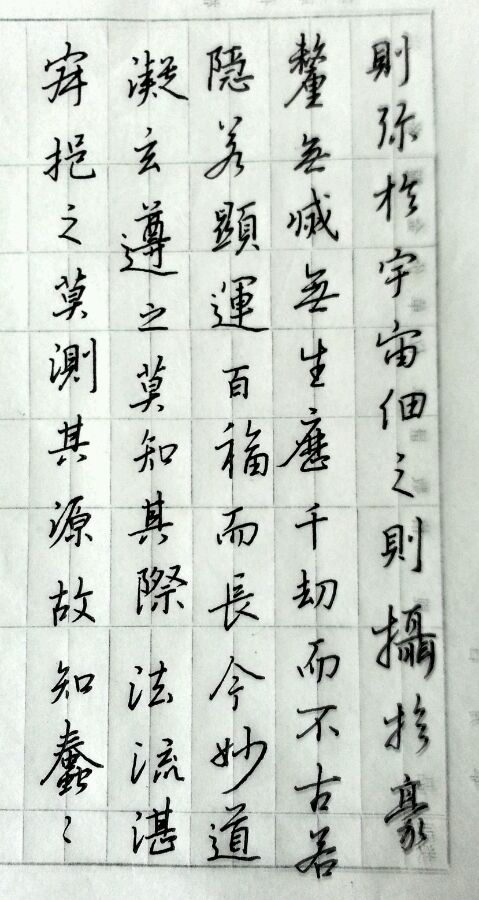 則弥於宇宙細之則攝於豪
釐無滅無生歷千劫而不古若
隱若顯運百福而長今妙道
凝玄遵之莫知其際法流湛
寂挹之莫測其源故知蠢〻